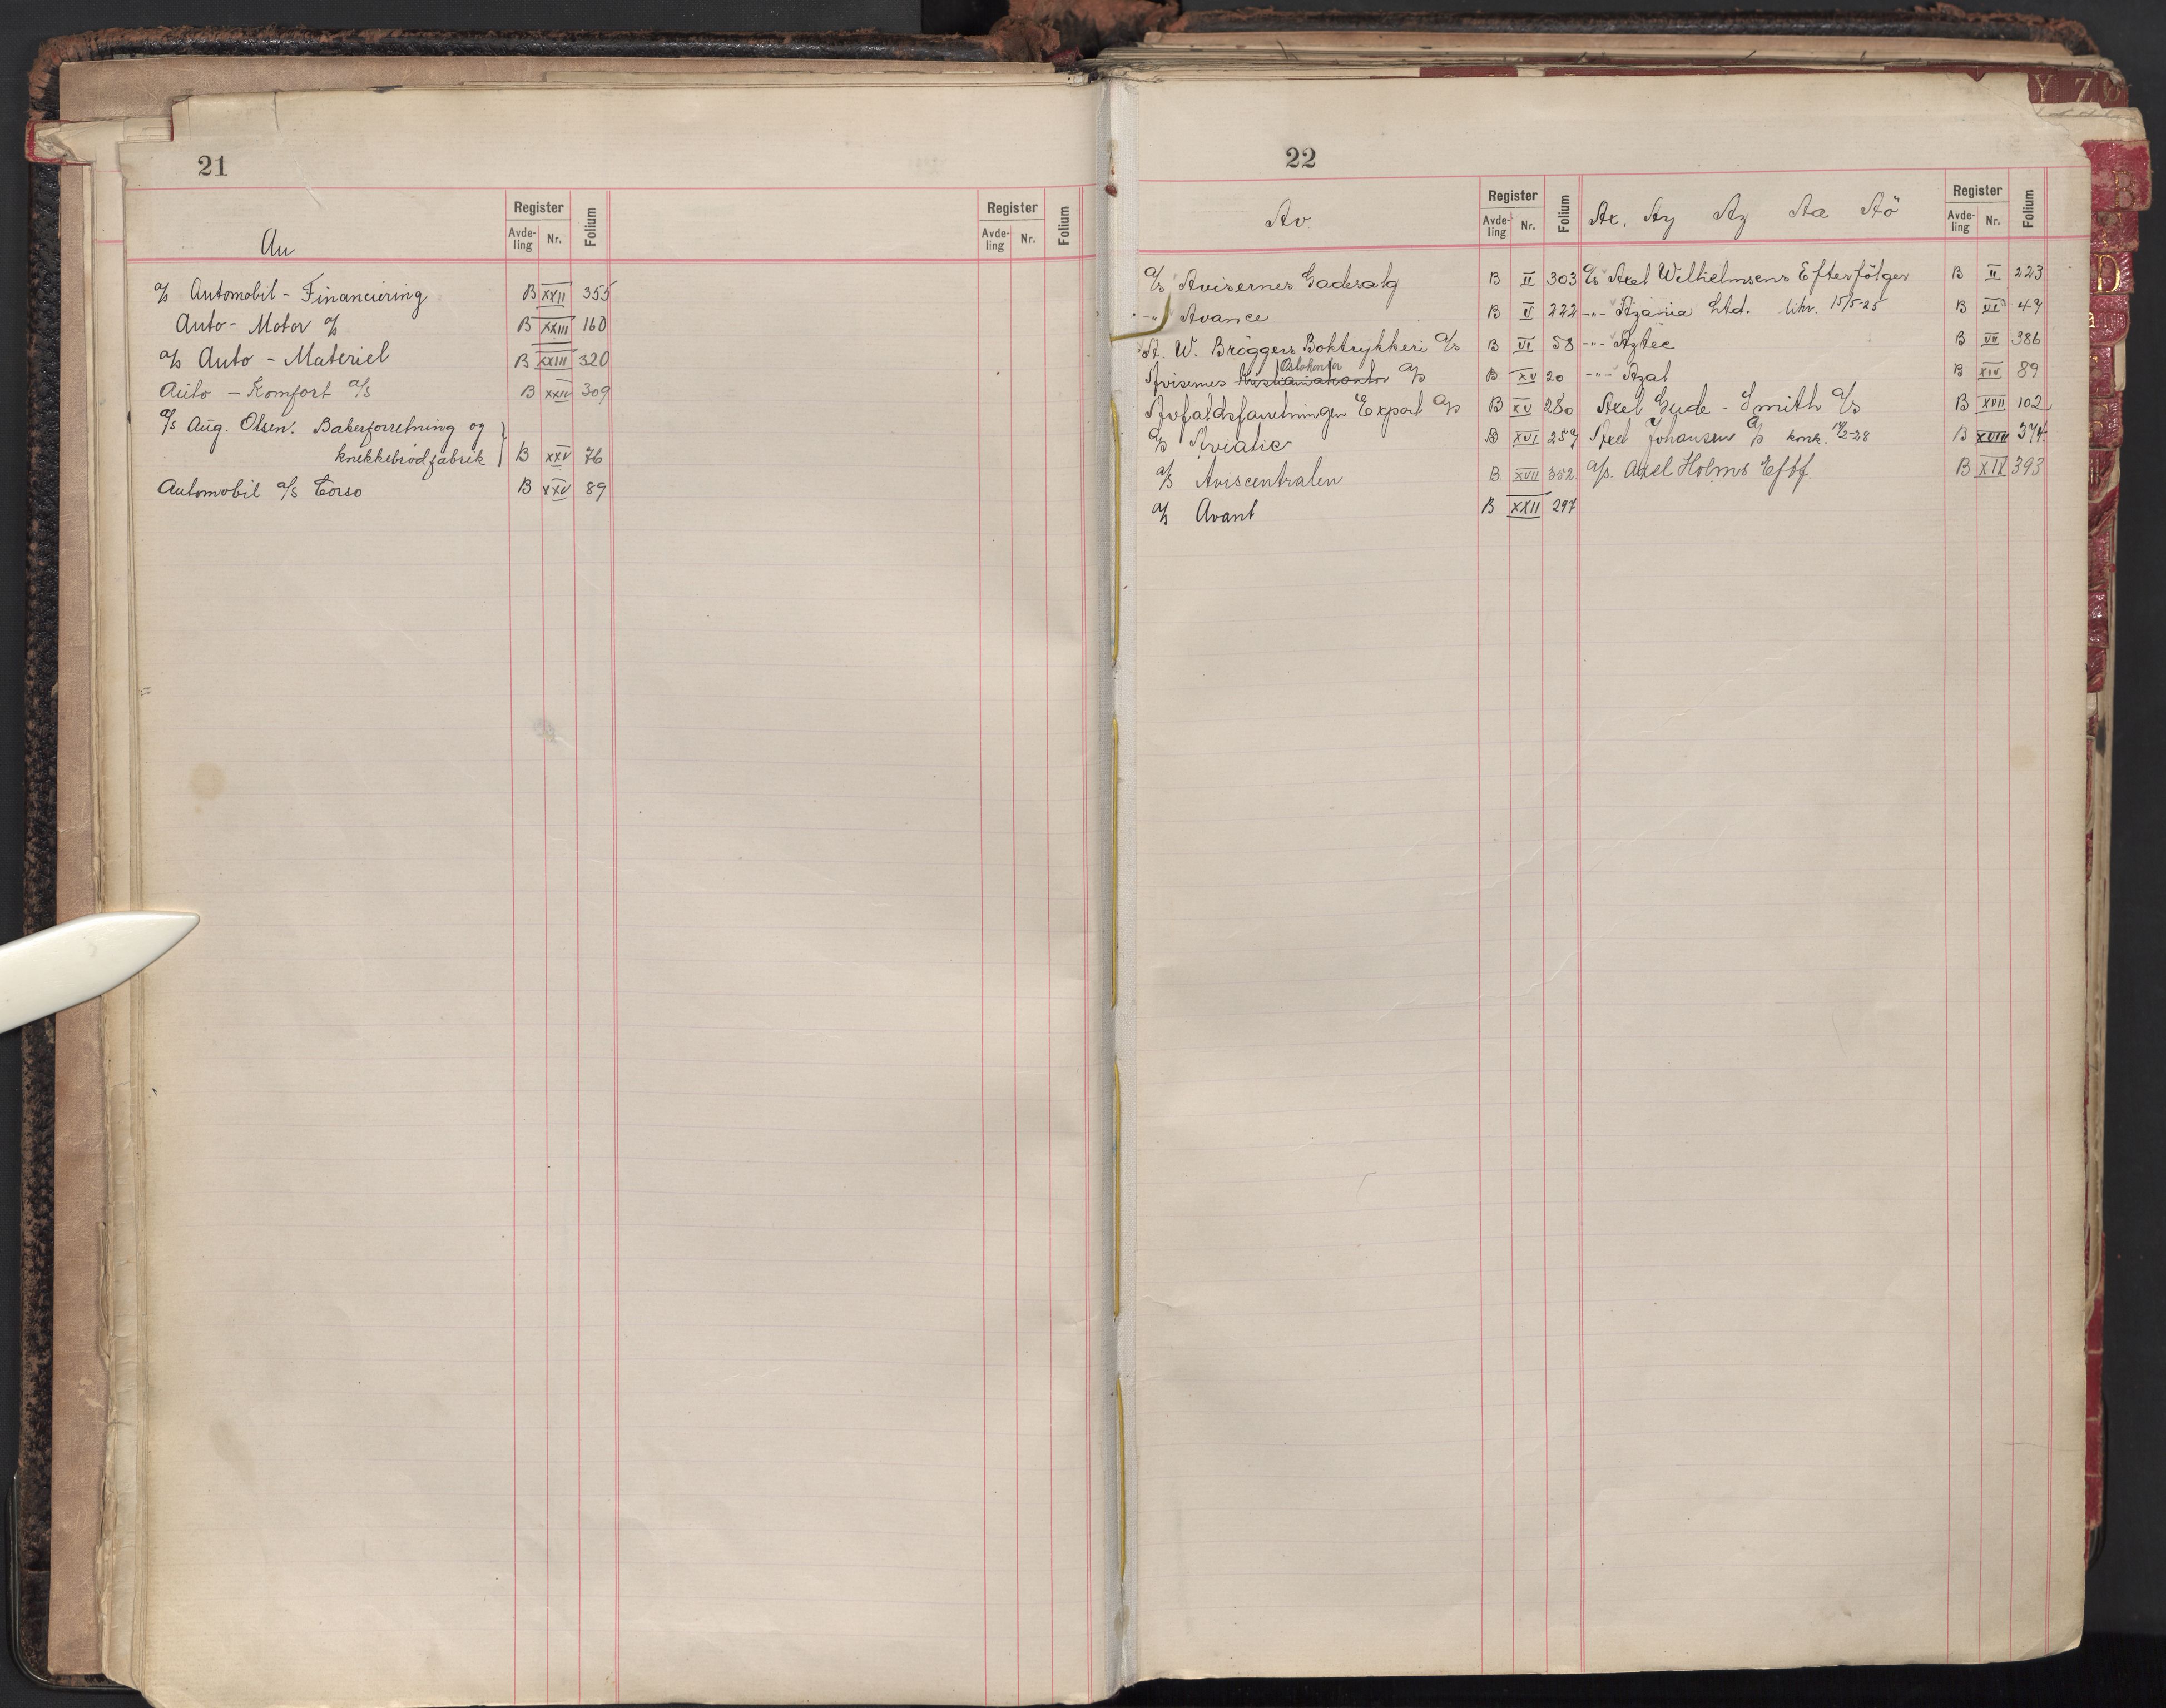 21
Register
Avde-
ling
Nr.
Folium
Register
Avde-
ling
Nr.
Folium
Au
a/s Automobil - Financiering B XXII 355
Auto - Motor a/s B XXIII 160
a/s Auto - Materiel B XXIII 320
Auto - Komfort a/s B 309
a/s Aug. Olsen. Bakerforretning og
knekkebrödfabrik B XXV 76
Automobil a/s Torso B XXV 89
22
Av
Register
Avde-
ling
Nr.
Folium
A/s Avisernes Gadesalg B II 303
-"- Avance B V 222
A. W. Bröggers Boktrykkeri A/s B VI 58
Oslokontor
Avisernes Kristianiakontor A/s B XV 20
Avfaldsforretningen Export A/s B XV 280
A/s Aviatic B XVI 259
A/s Aviscentralen B XVII 352
a/s Avant B XXII 297
Ax, Ay Az Aa Aö
Register
Avde-
ling
Nr.
Folium
A/s Axel Wilhelmsens Efterfölger B II 223
-"- Azania Ltd. likv. 15/5-25 B VI 47
-"- Aztec B VII 386
-"- Azal B XIV 89
Axel Gude - Smith A/s B XVII 102
Axel Johansen A/s konk. B XVIII 374
A/s. Axel Holms Eftf. B XIX 393
Y Z Ø
B
D